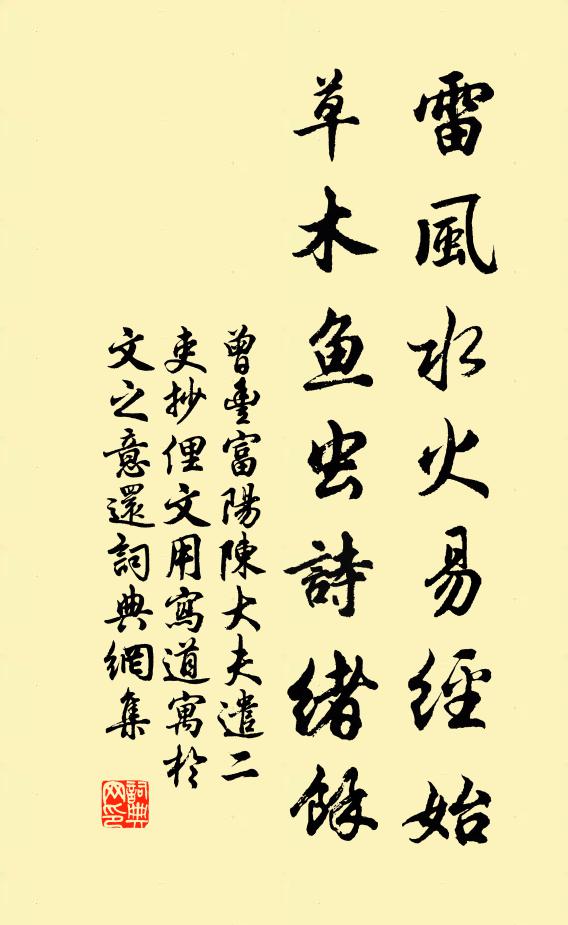 雷風水火易經始
草木鱼虫詩緒餘
曾豊富陽陳大夫遣二
吏抄俚文用寫道寓於
文之意還詞典網集
詞典网印